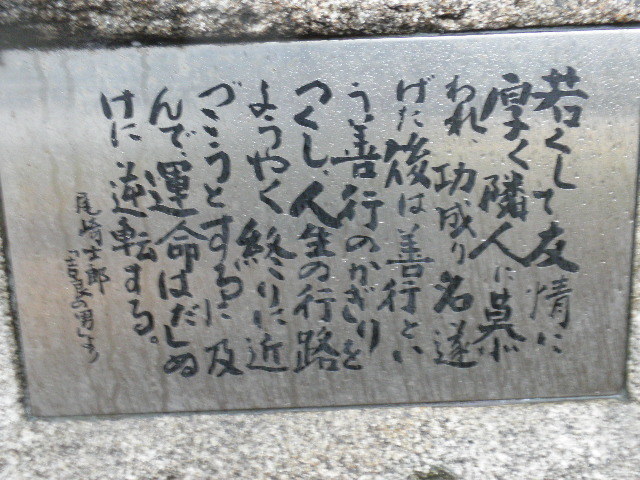 若くして友情に
厚く隣人に慕
われ、功成り名遂
げた後は善行とい
う善行のかぎりを
つくし、人生の行路
ようやく終りに近
づこうとするに及
んで、運命はだしぬ
けに逆転する。
尾崎士郎
「吉良の男」より